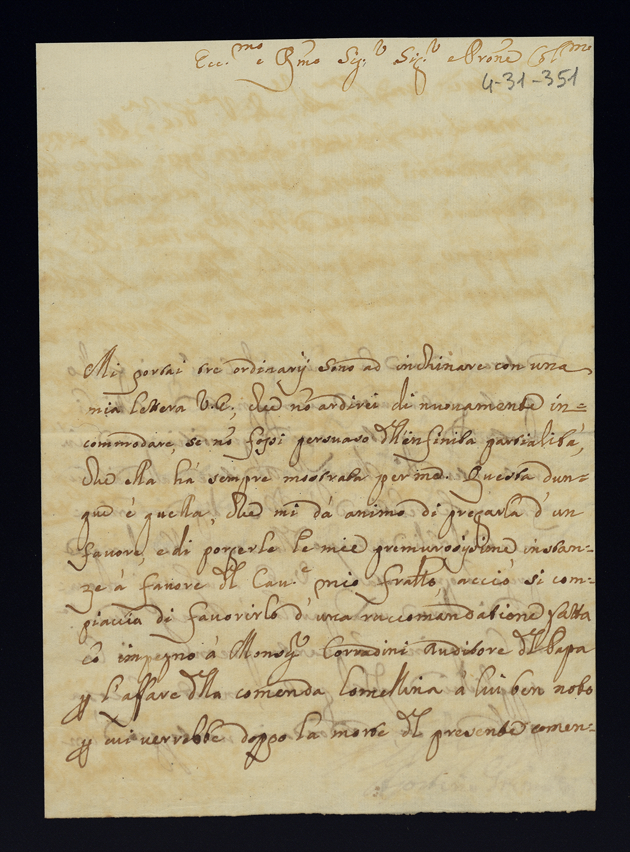 Ecc.mo e Rmo Sig.r Sig.r e Prone Col.mo
4-31-351
Mi portai tre ordinarij sono ad inchinare con una
mia lettera V.E., che nõ ardirei di nuovamente in=
commodare, se nõ fossi persuaso dll'infinita partialità,
che ella hà sempre mostrata per me. Questa dun=
que è quella, che mi dà animo di pregarla d'un
favore, e di porgerle le mie premurosissime instan=
ze à favore dl Cav.e mio frallo, acciò si com=
piaccia di favorirlo d'una raccomandatione fatta
cõ impegno à Monsig.r Corradini Auditore dl Papa
p l'affare dlla comenda Lomellina à lui ben noto
p cui verrebbe doppo la morte dl presente comen=